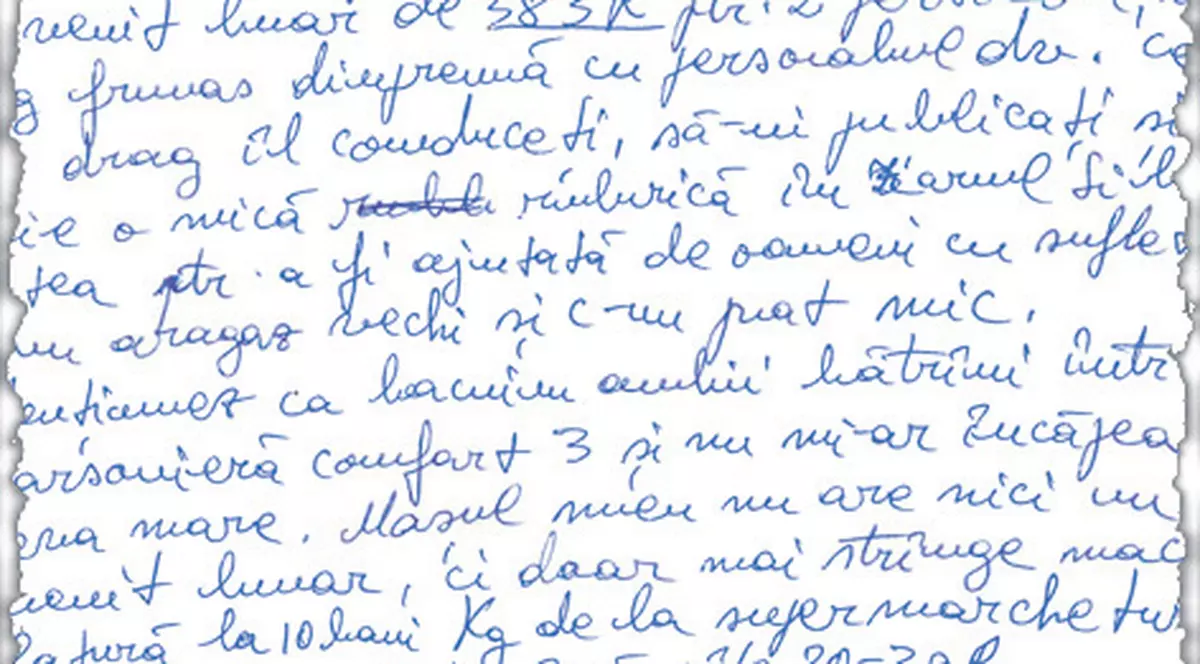 venit lunar de 383 R ptr. 2
g frumos dimpreună cu personalul dv.
drag îl conduceți, să-mi publicați și
ie o mică rubrică în ziarul
tea ptr. a fi ajutată de oameni cu sufle
un aragaz vechi și c-un pat mic.
enționez ca locuim ambii bătrîni într
arsonieră comfort 3 și nu mi-ar încăpea
mare. Masul mieu nu are nici un
venit lunar, ci doar mai strînge mac
latură la 10 bani Kg de la supermarchetur